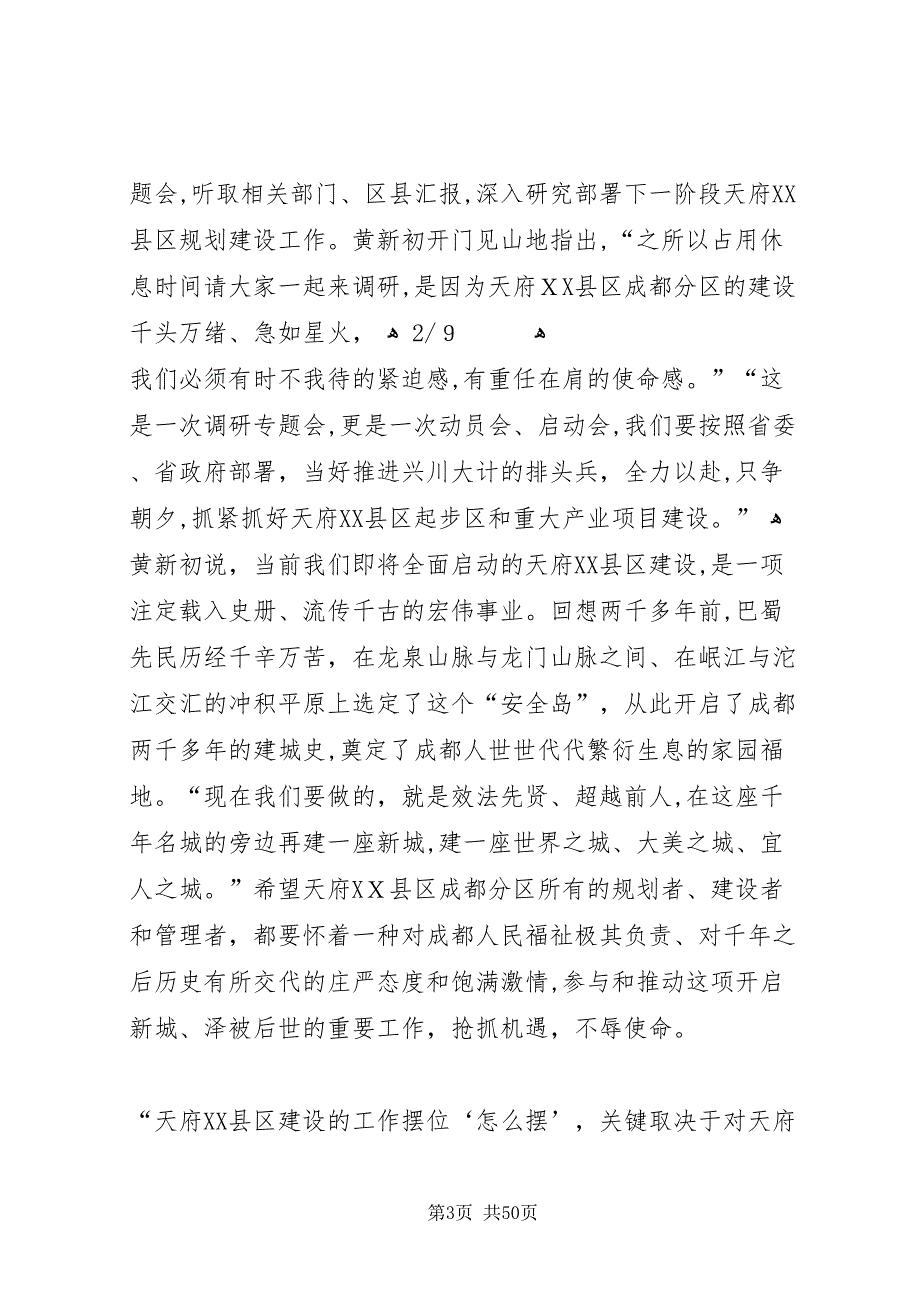 题会,听取相关部门、区县汇报,深入研究部署下一阶段天府XX
县区规划建设工作。黄新初开门见山地指出,“之所以占用休
息时间请大家一起来调研,是因为天府XX县区成都分区的建设
千头万绪、急如星火， ﻫ 2/9 ﻫ
我们必须有时不我待的紧迫感,有重任在肩的使命感。”“这
是一次调研专题会,更是一次动员会、启动会,我们要按照省委
、省政府部署，当好推进兴川大计的排头兵，全力以赴,只争
朝夕,抓紧抓好天府XX县区起步区和重大产业项目建设。” ﻫ
黄新初说，当前我们即将全面启动的天府XX县区建设,是一项
注定载入史册、流传千古的宏伟事业。回想两千多年前,巴蜀
先民历经千辛万苦，在龙泉山脉与龙门山脉之间、在岷江与沱
江交汇的冲积平原上选定了这个“安全岛”，从此开启了成都
两千多年的建城史,奠定了成都人世世代代繁衍生息的家园福
地。“现在我们要做的，就是效法先贤、超越前人,在这座千
年名城的旁边再建一座新城,建一座世界之城、大美之城、宜
人之城。”希望天府XX县区成都分区所有的规划者、建设者
和管理者，都要怀着一种对成都人民福祉极其负责、对千年之
后历史有所交代的庄严态度和饱满激情,参与和推动这项开启
新城、泽被后世的重要工作，抢抓机遇，不辱使命。
“天府XX县区建设的工作摆位‘怎么摆’，关键取决于对天府
第3页 共50页